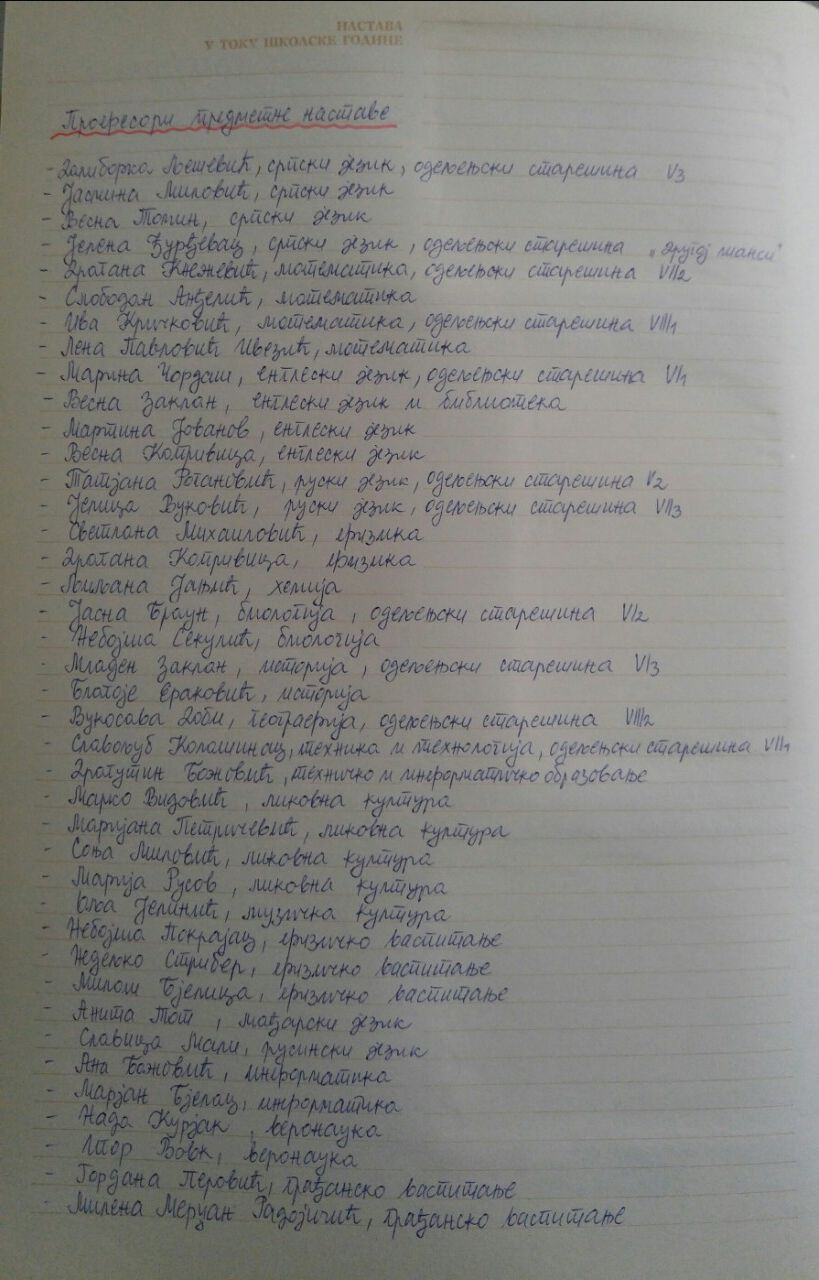 НАСТАВА
У ТОКУ ШКОЛСКЕ ГОДИНЕ
Професори предметне наставе
- Далиборка Љешевић, српски језик, одељењски старешина V3
- Јасмина Миловић, српски језик
- Весна Томин, српски језик
- Јелена Ђурђевац, српски језик, одељењски старешина „Другој шанси"
- Драгана Кнежевић, математика, одељењски старешина VII2
- Слободан Анђелић, математика
- Ива Кричковић, математика, одељењски старешина VIII1
- Лена Павловић Ивезић, математика
- Марина Чордаш, енглески језик, одељењски старешина VI1
- Весна Заклан, енглески језик и библиотека
- Мартина Јованов, енглески језик
- Весна Копривица, енглески језик
- Татјана Рогановић, руски језик, одељењски старешина V2
- Јелица Вуковић, руски језик, одељењски старешина VII3
- Светлана Михаиловић, физика
- Драгана Копривица, физика
- Љиљана Јањић, хемија
- Јасна Браун, биологија, одељењски старешина VI2
- Небојша Секулић, биологија
- Младен Заклан, историја, одељењски старешина VI3
- Благоје Ераковић, историја
- Вукосава Доби, географија, одељењски старешина VIII2
- Славољуб Колашинац, техника и технологија, одељењски старешина VII1
- Драгутин Божовић, техничко и информатичко образовање
- Марко Видовић, ликовна култура
- Маријана Петричевић, ликовна култура
- Соња Миловић, ликовна култура
- Марија Русов, ликовна култура
- Јелинић, музичка култура
- Небојша Покрајац, физичко васпитање
- Недељко Стрибер, физичко васпитање
- Милош Бјелица, физичко васпитање
- Анита Тот, мађарски језик
- Славица Мали, русински језик
- Ана Божовић, информатика
- Марјан Бјелац, информатика
- Нада Курјак, веронаука
- Игор Вовк, веронаука
- Гордана Перовић, грађанско васпитање
- Милена Мерџан Радојичић, грађанско васпитање